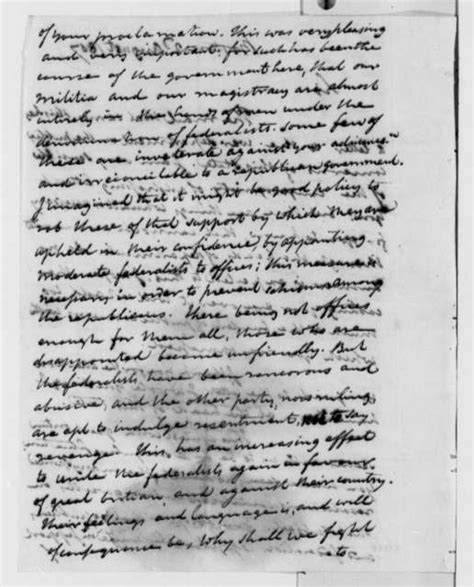 of your proclamation. This was very pleasing
and very important. for such has been the
course of the government here, that our
militia and our magistracy are almost
entirely in the hands of men under the
denomination of federalists. some few of
these are inveterate against your administn
and irreconcilable to a republican government.
I imagined that it might be good policy to
rob these of that support by which they are
upheld in their confidence, by appointing
moderate federalists to offices; this measure is
necessary in order to prevent schism among
the republicans. there being not offices
enough for them all, those who are
disappointed become unfriendly. But
the federalists have been rancorous and
abusive, and the other party, nonsmiling
are apt to indulge resentment, not to say
revenge. this, has an increasing effect
to unite the federalists again in favour
of great britain and against their country.
Their feelings and language is, and will
of consequence be, Why shall we fight
to